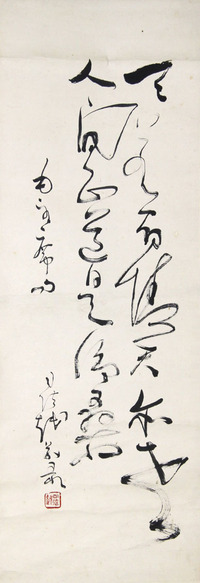 天若有情天亦老
人间正道是沧桑
毛主席词